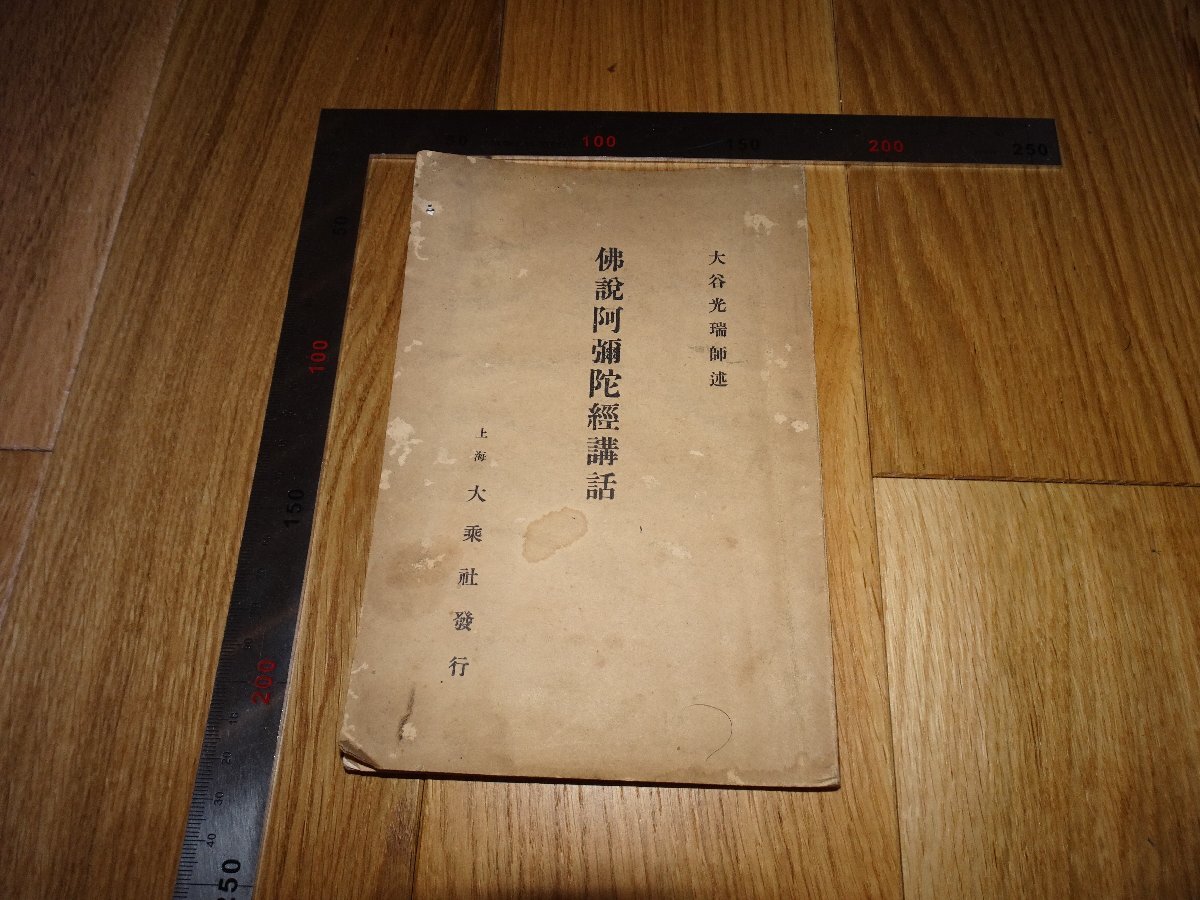 大谷光瑞師述
佛說阿彌陀經講話
上海 大乘社發行
50
100
150
200
250
50
100
150
200
10
20
30
40
250